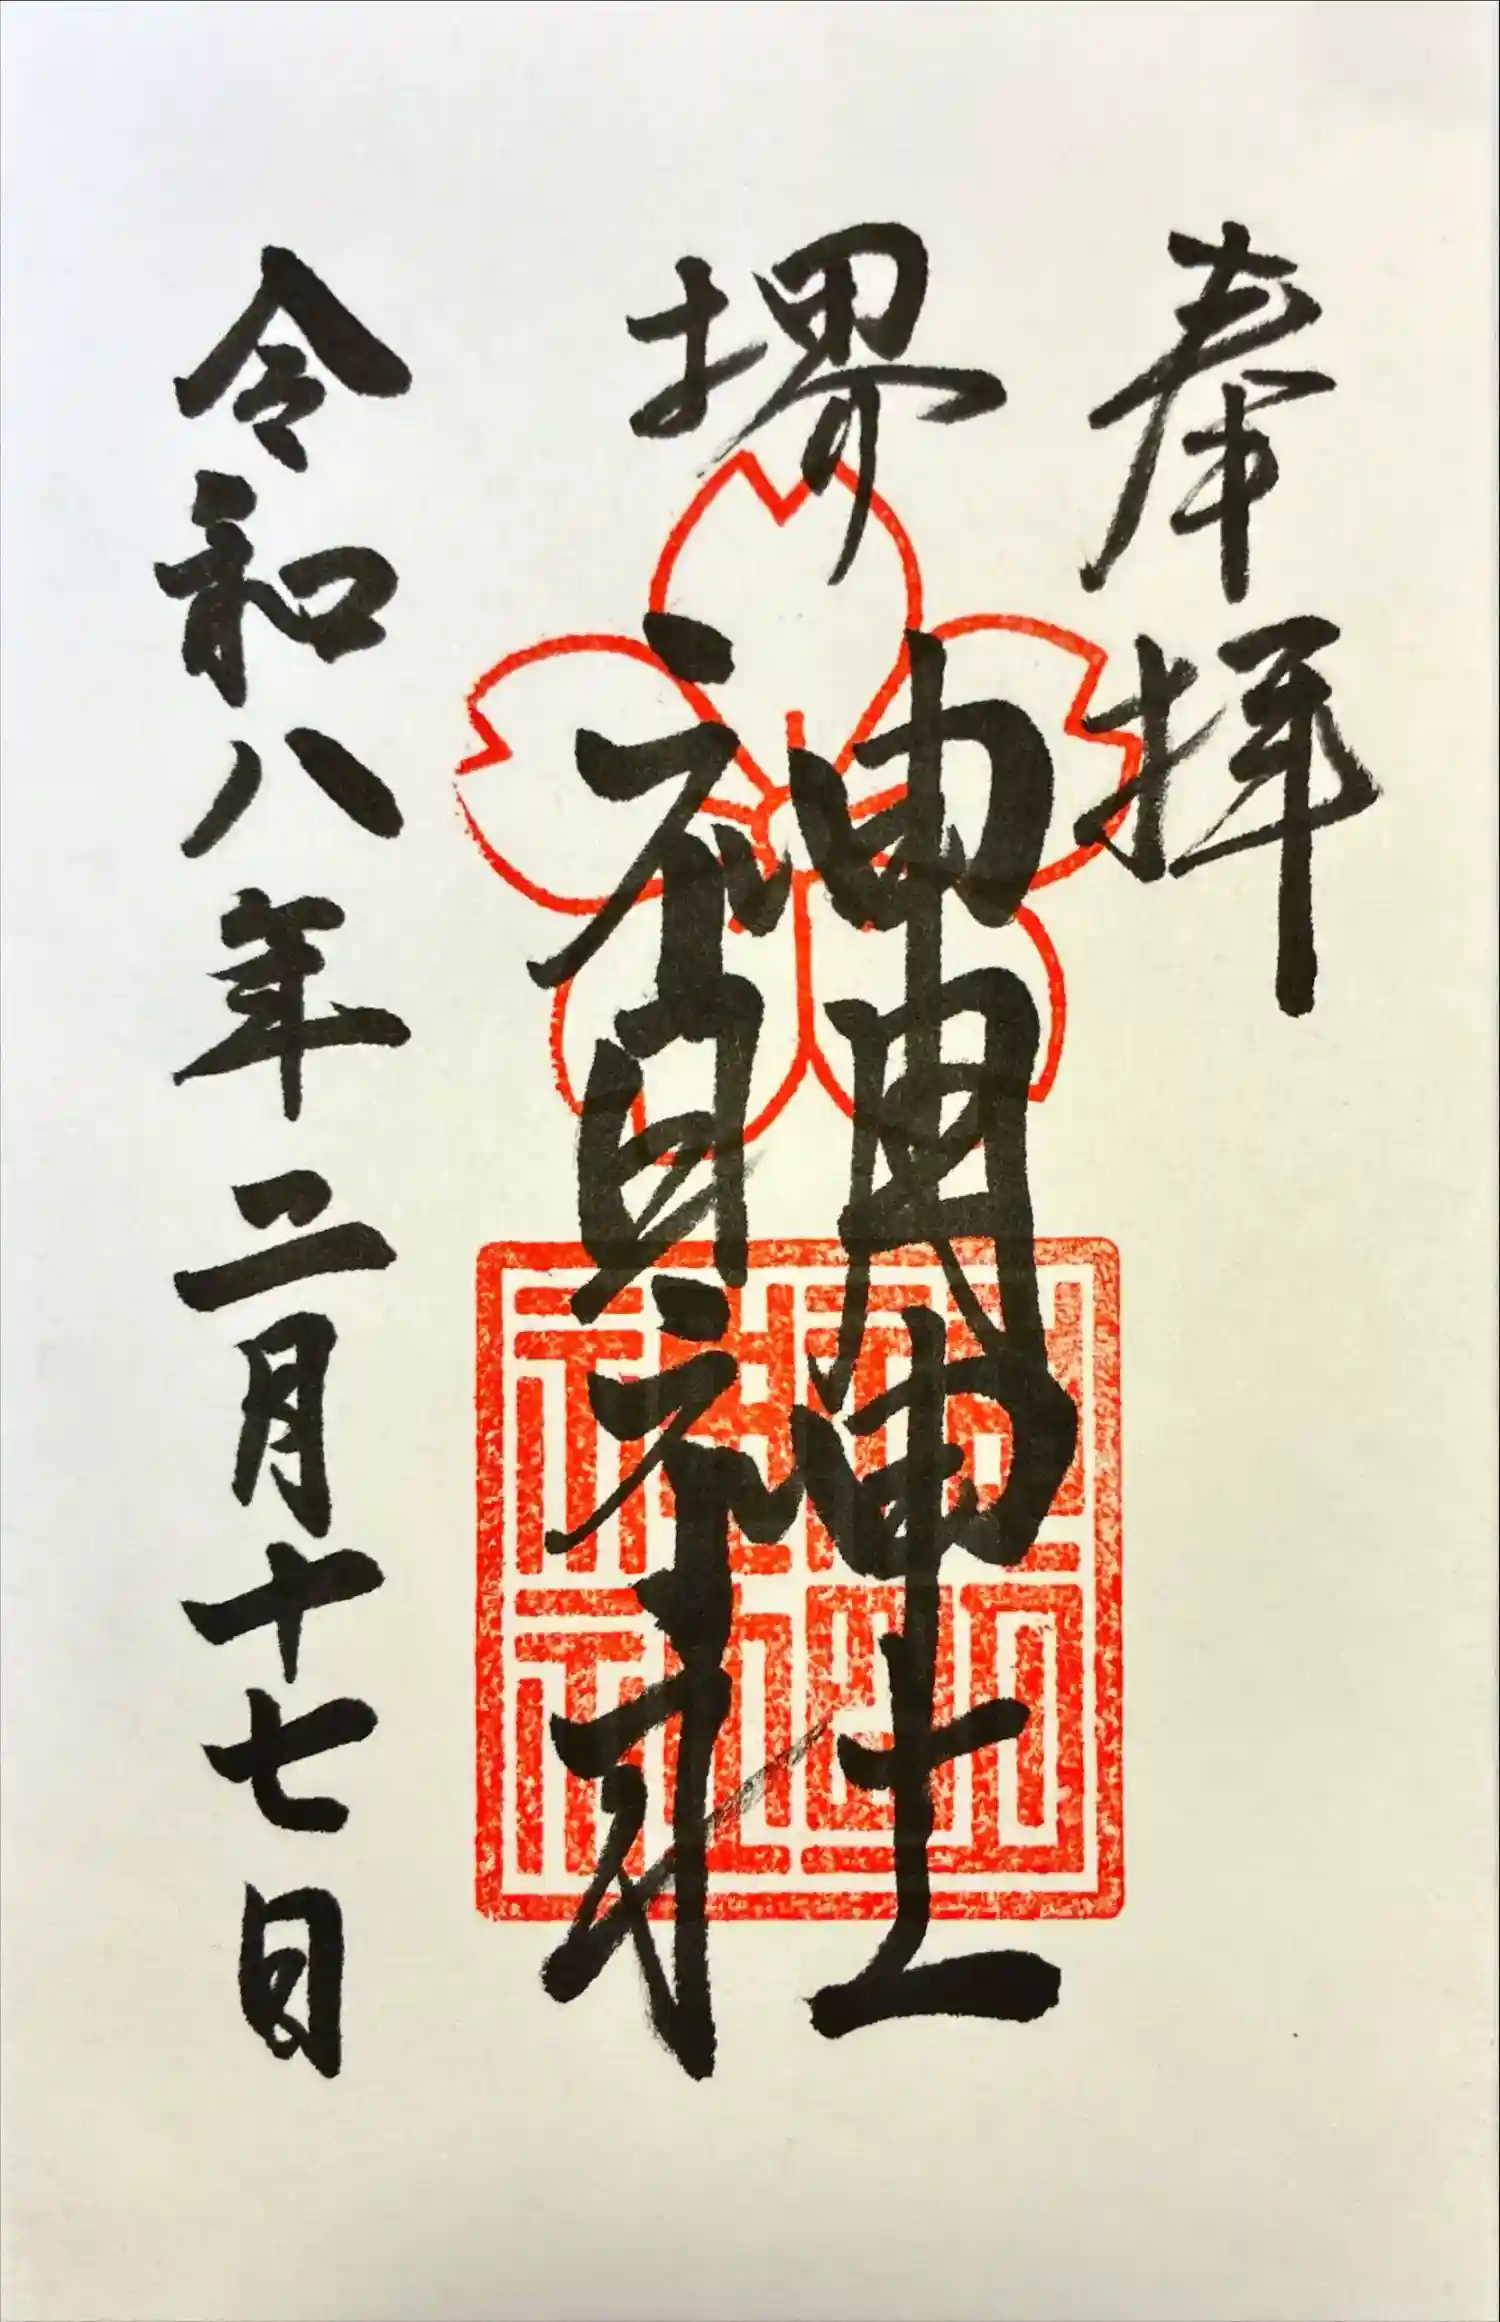 奉拝
堺
神明神社
令和八年二月十七日
神明神社